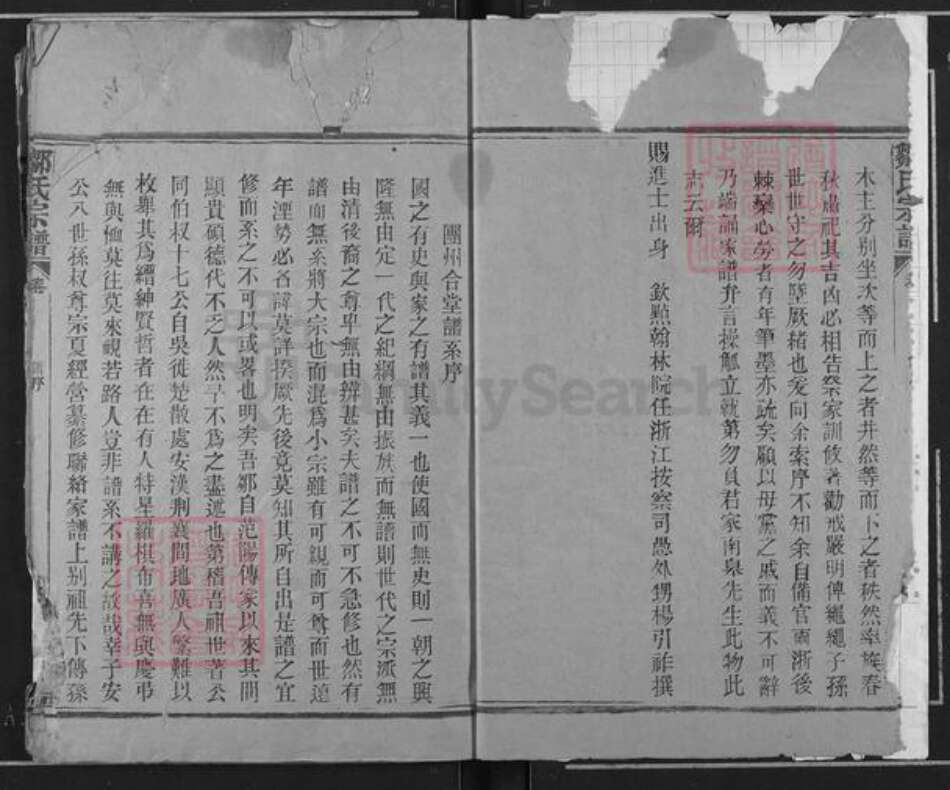 鄒氏宗譜
木主分別坐次等而上之者井然等而下之者秩然率族春
秋肅祀其吉凶必相告祭家訓攸著勸戒嚴明俾繩繩子孫
世世守之勿墜厥緒也爰向余索序不知余自備官兩浙後
棘欒心勞者有年筆墨亦疏矣顧以母黨之戚而義不可辭
乃端誦家譜弁言操觚立就第勿負君家南皋先生此物此
志云爾
賜進士出身 欽點翰林院任浙江按察司愚外甥楊引祚撰
團州合堂譜系序
國之有史與家之有譜其義一也使國而無史則一朝之興
隆無由定一代之紀綱無由振族而無譜則世代之宗派無
由清後裔之尊卑無由辨甚矣夫譜之不可不急修也然有
譜而無系將大宗也而混為小宗雖有可親而可尊而世遠
年湮勢必名諱莫詳揆厥先後竟莫知其所自出是譜之宜
修而系之不可以或畧也明矣吾鄒自范陽傳家以來其間
顯貴碩德代不乏人然予不為之盡述也第稽吾祖世著公
同伯叔十七公自吳徙楚散處安漢荊襄間地廣人繁難以
枚舉其為縉紳賢哲者在在有人特星羅棋布喜無與慶弔
無與恤莫往莫來視若路人豈非譜系不講之故哉幸予安
公八世孫叔尊宗夏經營纂修聯絡家譜上别祖先下傳孫
鄒氏宗譜
序
FamilySearch